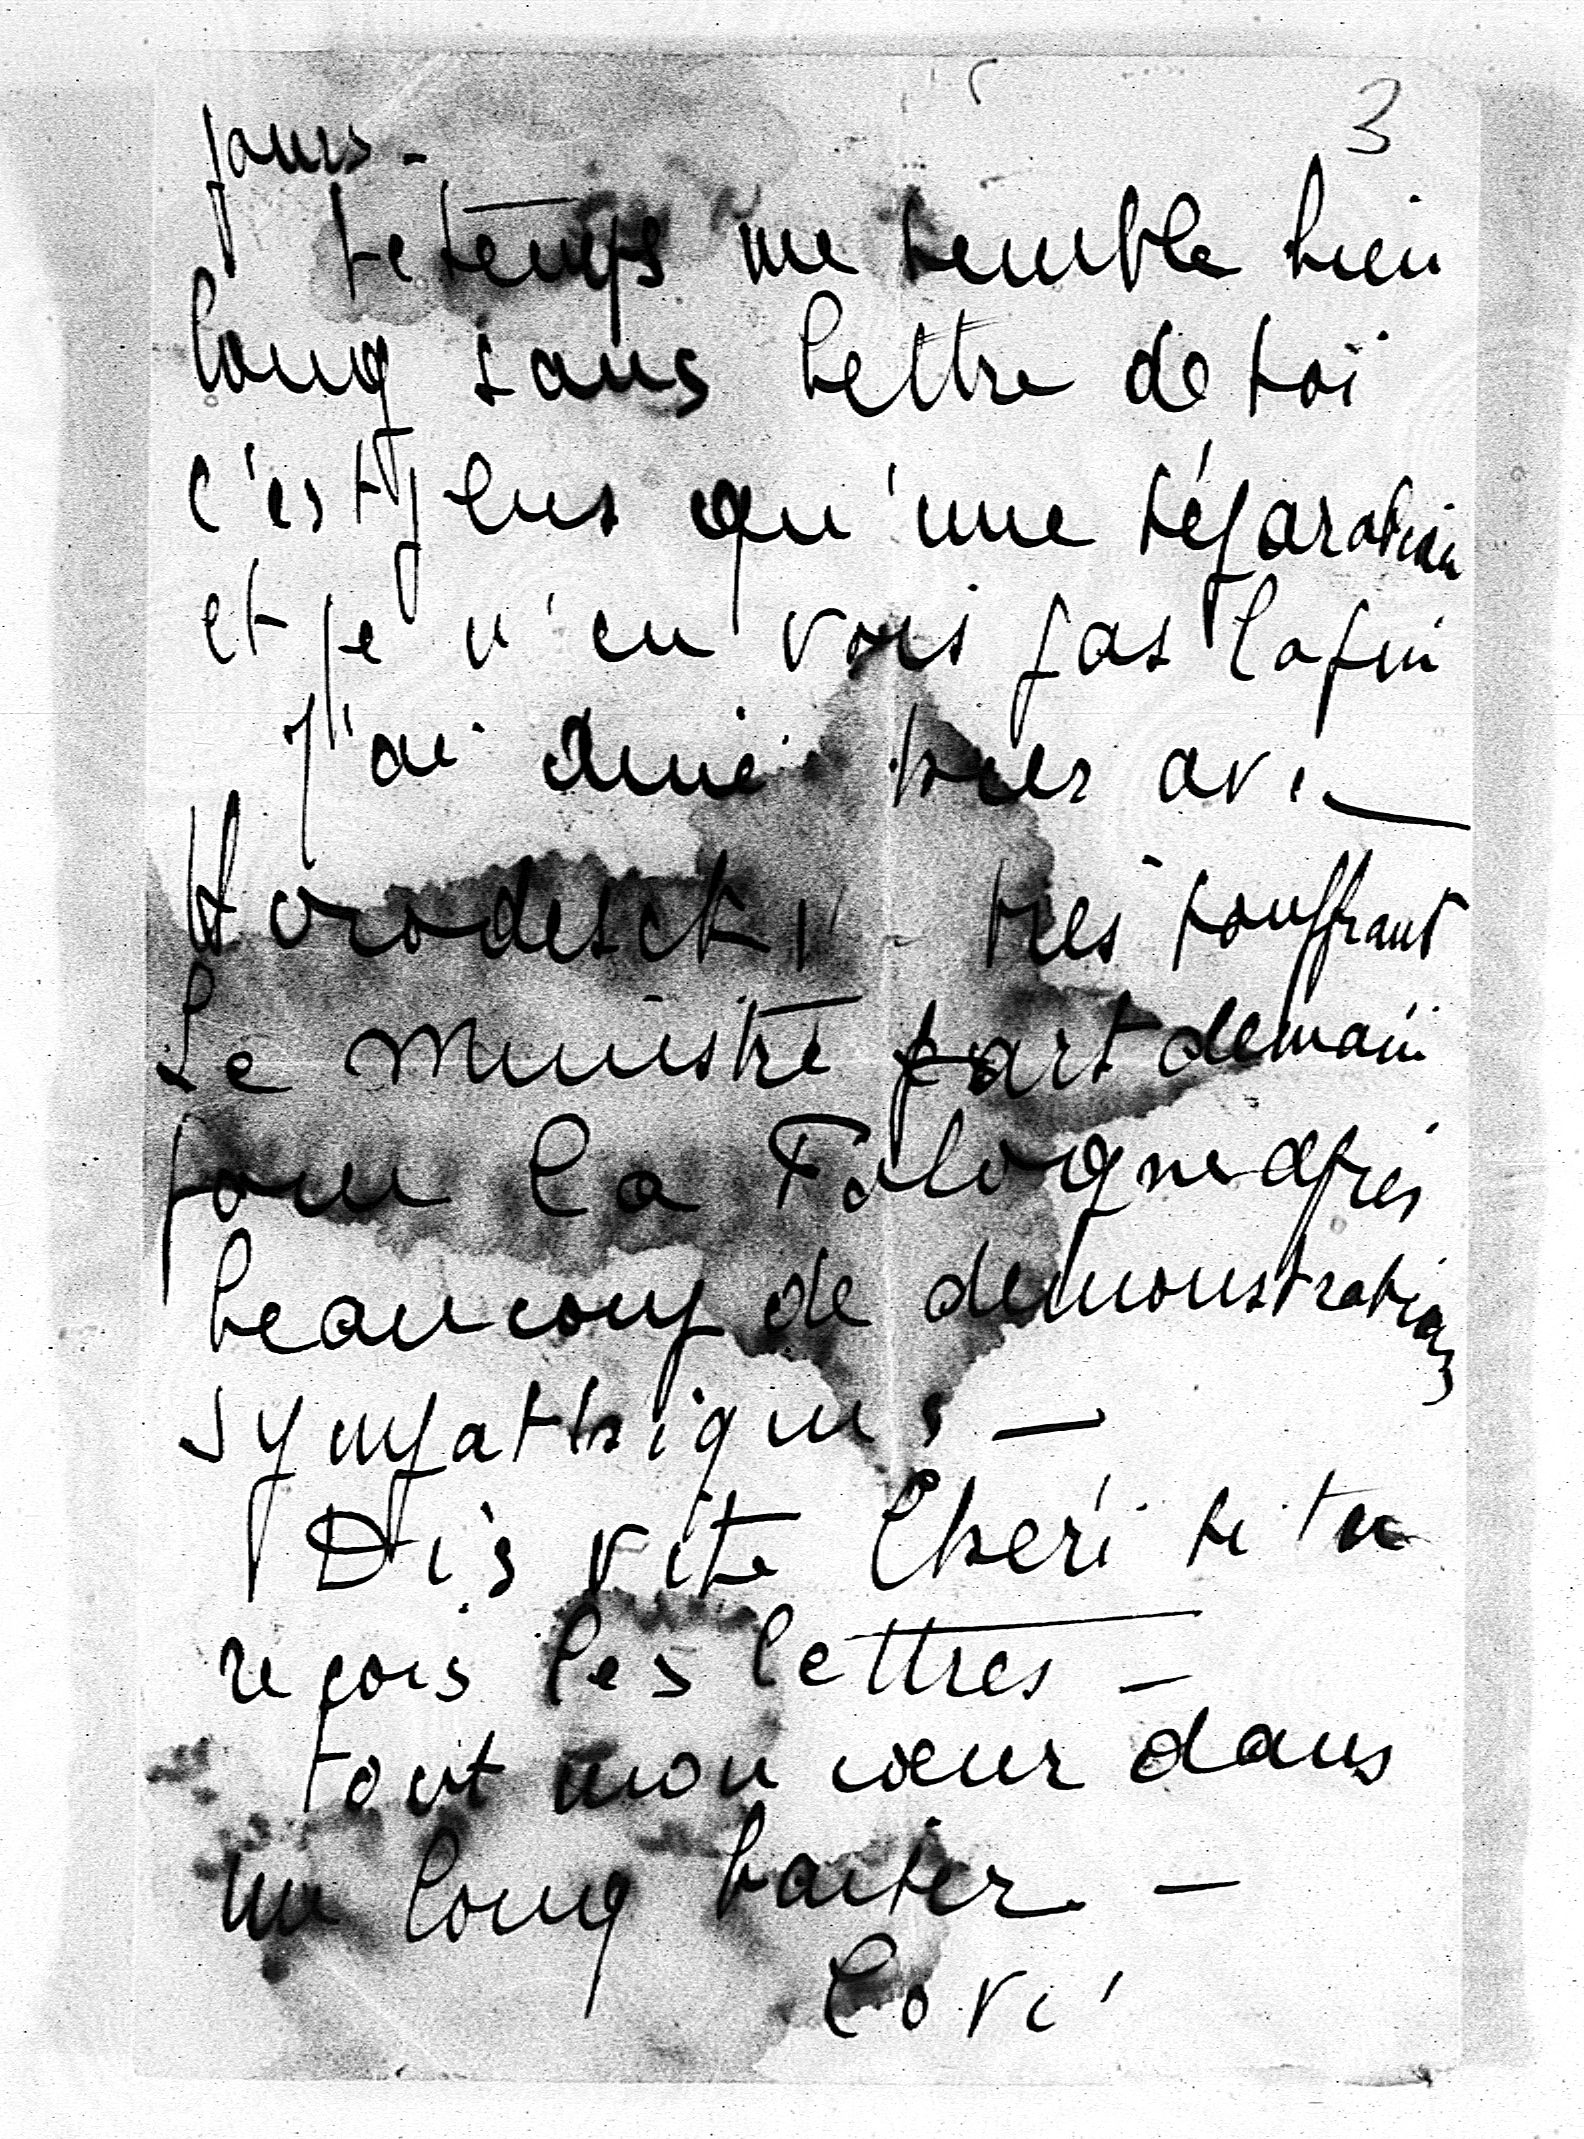 3
jours -
Le temps me semble bien
long sans lettre de toi
c'est plus qu'une séparation
et je n'en vois pas la fin
J'ai diné hier avec
Horodescki - très souffrant
Le Ministre part demain
pour la Pologne après
beaucoup de demonstrations
sympathiques —
Dis vite Chéri si tu
reçois les lettres —
tout mon cœur dans
un long baiser. —